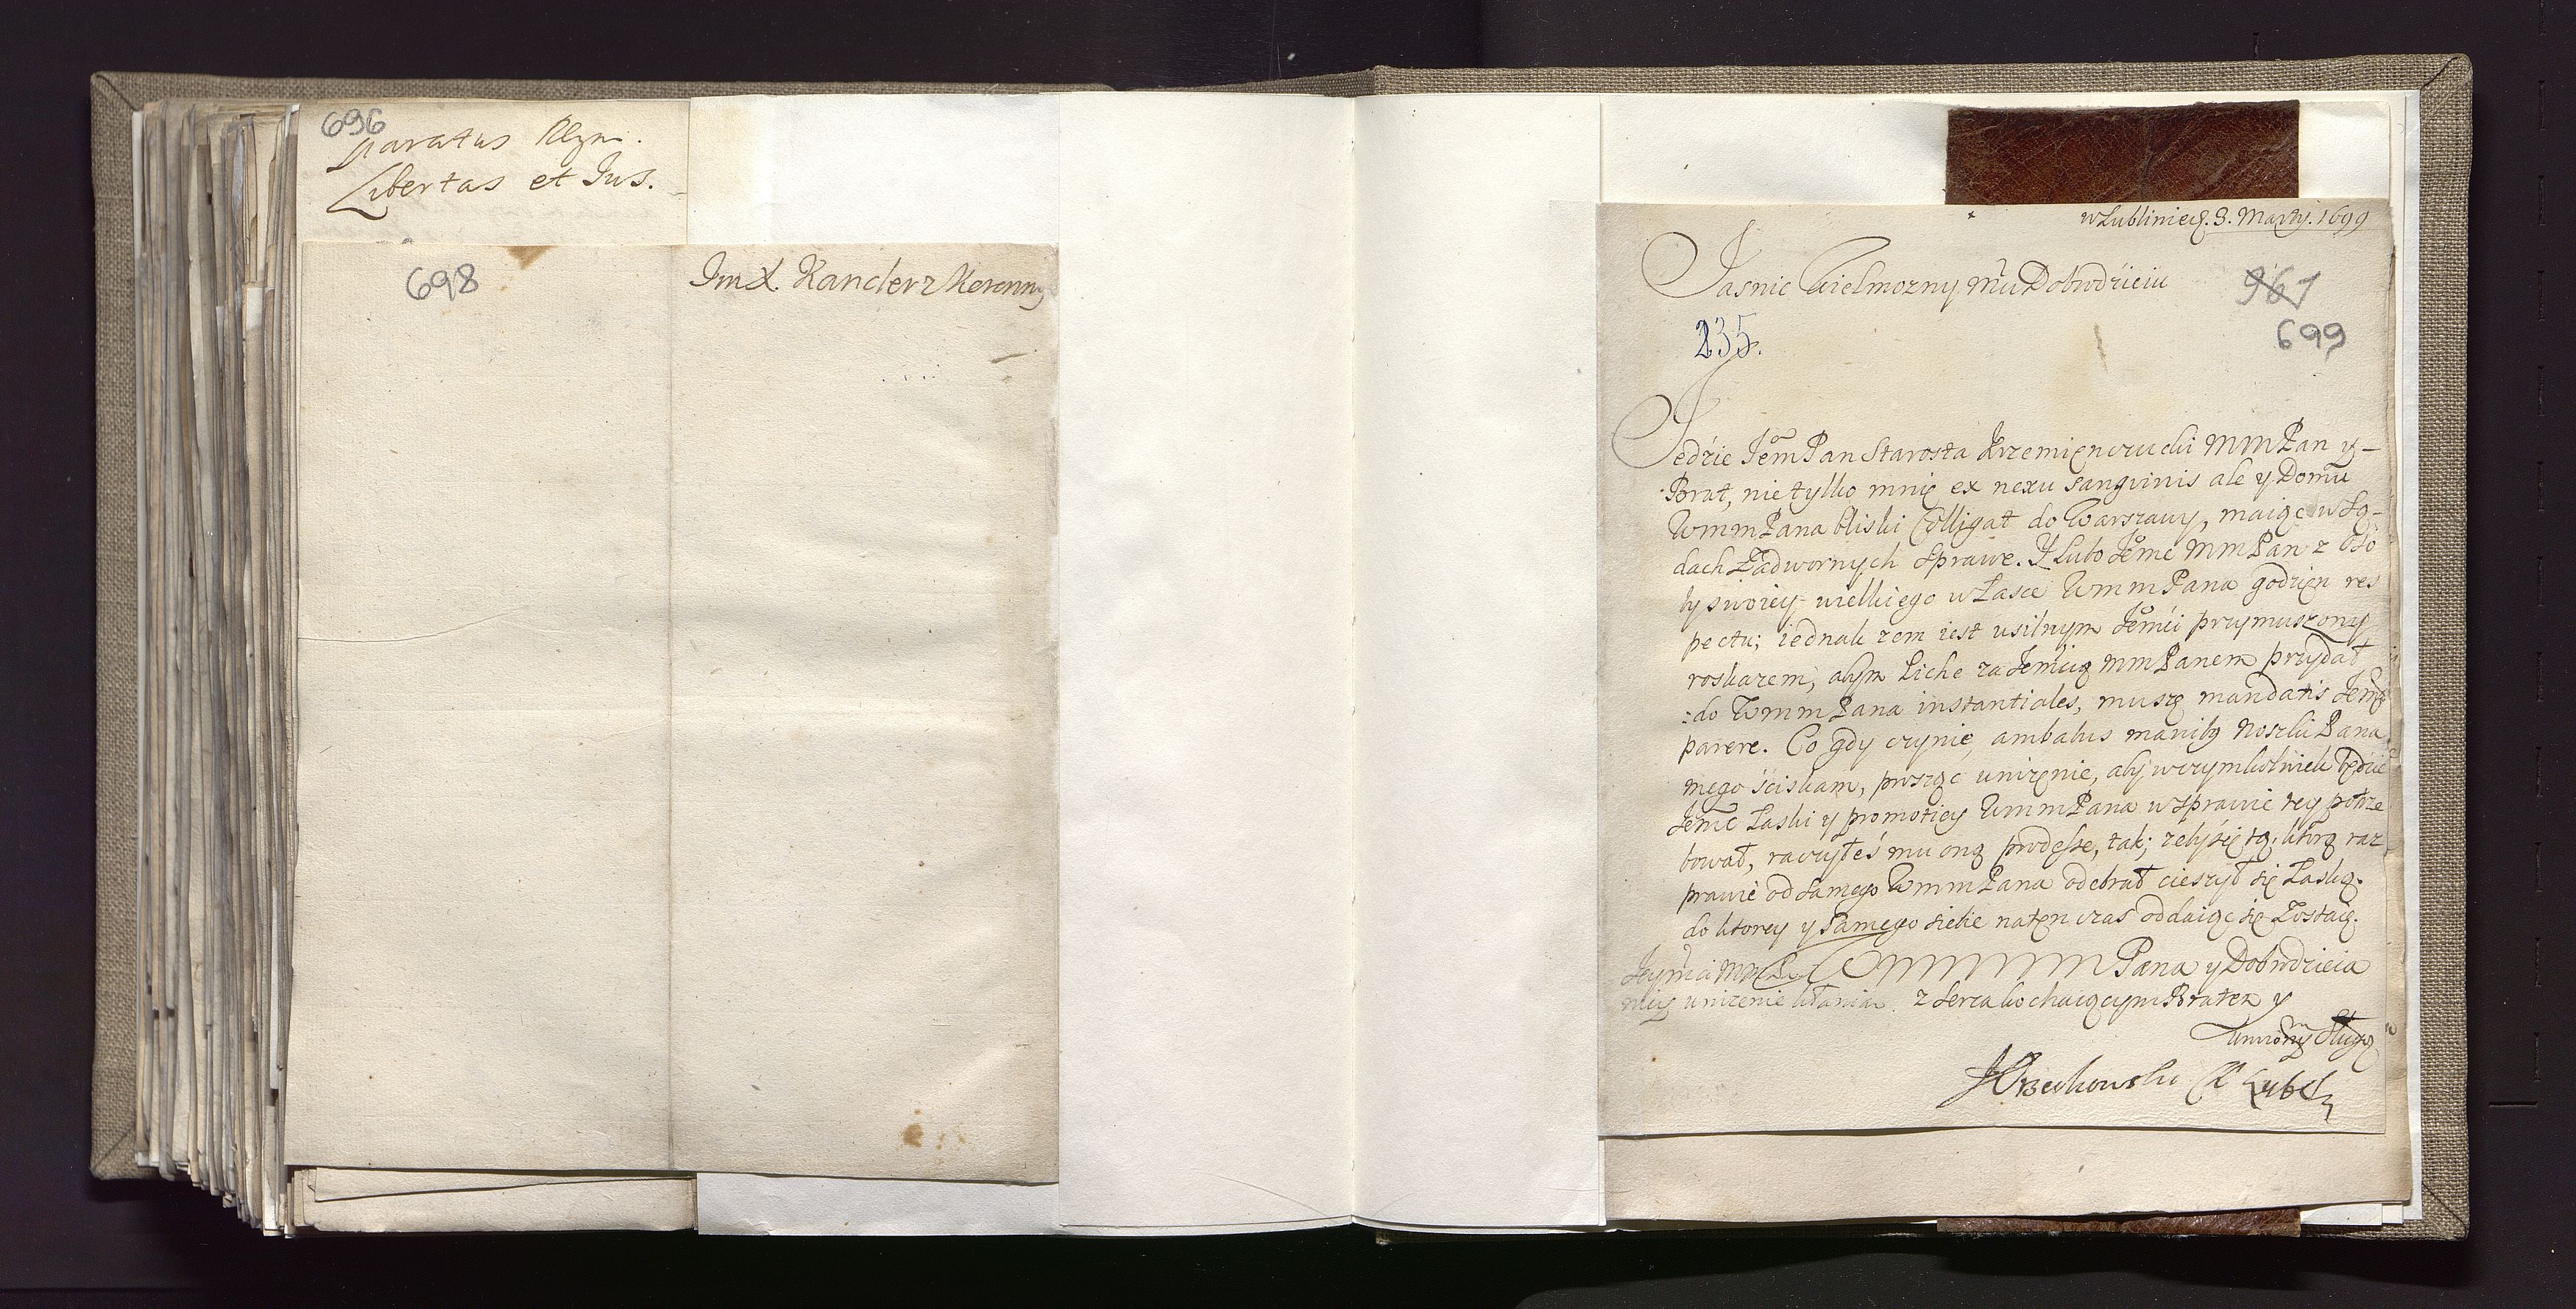 696
paratus
Libertas et Jus.
698
Jmć X. Kanclerz Koronny
w Lublinie d. 3. Martij. 1699
Jasnie Wielmozny Mći Dobrodzieiu
967
235.
699
Jedzie Jem̃ Pan Starosta Krzemienczucki MMPan y
Brat, nie tylko mnię ex nexu sangvinis ale y Domu
WmmPana bliski Colligat do Warszawy, maiąc w Są-
dach Zadwornych sprawę. Y lubo Jemć MmPan z oso
by swoiey wielkiego w Łasce WmmPana godzien res
pectu; iednak zem iest usilnym Jemći przymuszony
roskazem, abym liche za Jemcią mmPanem przydał
do WmmPana instantiales, muszę mandatis Jemći
parere. Co gdy czynię, ambabus manibꝫ nozki Pana
mego sciskam, prosząc unizenie, aby w czymkolwiek będzie
Jemć Łaski y promotiey WmmPana w sprawie tey potrze
bował, raczyłeś mu oną prodesse, tak; zeby się tą, ktorą raz
prawie od samego WmmPana odebrał cieszył się Łaską.
do ktorey y samego siebie naten czas oddaiąc się Zostaię.
Jeymći MM WMMMM Pana y Dobrodzieia
moiey unizenie kłaniam z serca kochaiącym Bratem y
unizonym Sługą
JOrzechowski Lubel